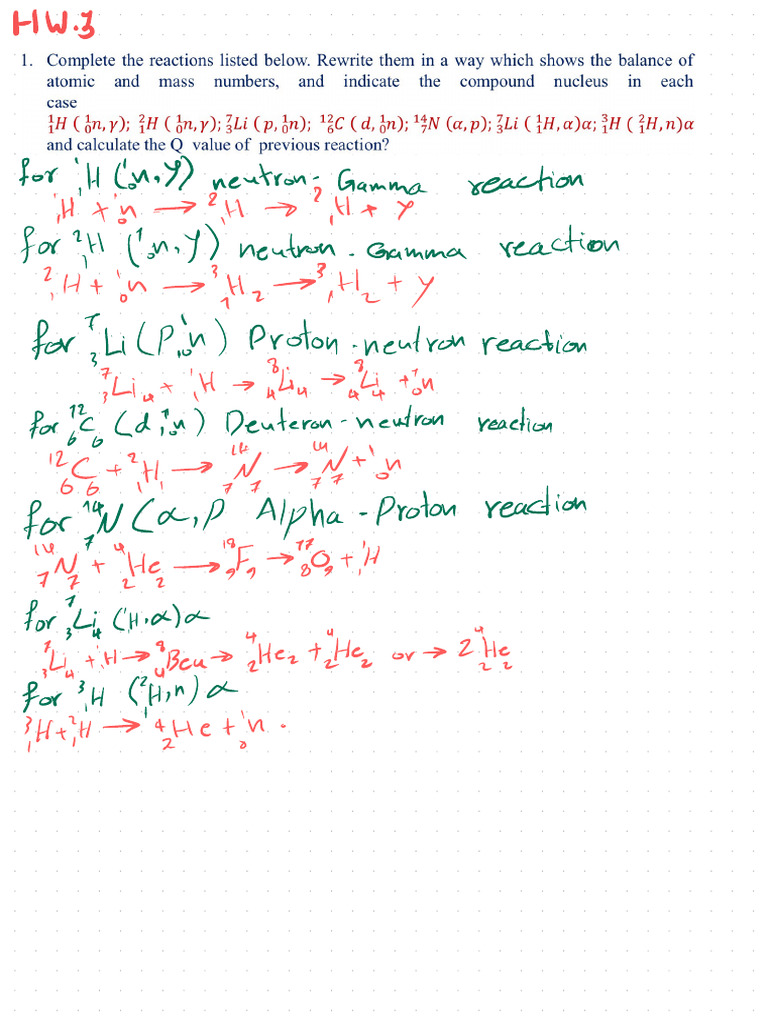 HW.3
1. Complete the reactions listed below. Rewrite them in a way which shows the balance of
atomic and mass numbers, and indicate the compound nucleus in each
case
¹₁H ( ¹₀n, γ); ²₁H ( ¹₀n, γ); ⁷₃Li ( p, ¹₀n); ¹²₆C ( d, ¹₀n); ¹⁴₇N (α, p); ⁷₃Li ( ¹₁H, α)α; ³₁H ( ²₁H, n)α
and calculate the Q value of previous reaction?
for ¹₁H (¹₀n, γ) neutron - Gamma reaction
¹₁H + ¹₀n → ²₁H → ²₁H + γ
for ²₁H (¹₀n, γ) neutron - Gamma reaction
²₁H + ¹₀n → ³₁H₂ → ³₁H₂ + γ
for ⁷₃Li (P, ¹₀n) Proton - neutron reaction
⁷₃Li₄ + ¹₁H → ⁸₄Li₄ → ⁸₄Li₄ + ¹₀n
for ¹²₆C₆ (d, ¹₀n) Deuteron - neutron reaction
¹²₆C₆ + ²₁H₁ → ¹⁴₇N₇ → ¹⁴₇N₇ + ¹₀n
for ¹⁴₇N (α, P Alpha - Proton reaction
¹⁴₇N₇ + ⁴₂He₂ → ¹⁸₉F₉ → ¹⁷₈O₉ + ¹₁H
for ⁷₃Li₄ (¹H, α) α
⁷₃Li₄ + ¹₁H → ⁸₄Be₄ → ⁴₂He₂ + ⁴₂He₂ or → 2 ⁴₂He₂
for ³₁H (²₁H, n) α
³₁H + ²₁H → ⁴₂He + ¹₀n .